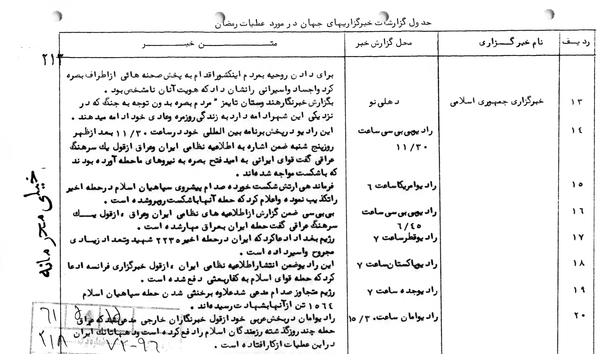 جدول گزارشات خبرگزاریهای جهان در مورد عملیات رمضان
ردیف نام خبرگزاری محل گزارش خبر متن خبر
۲۱۳
برای دادن روحیه بمردم اینکشوراقدام به پخش صحنه هائی ازاطراف بصره
کرد واجساد واسیرانی رانشان داد که هویت آنان نامشخص بود.
۱۳ خبرگزاری جمهوری اسلامی دهلی نو بگزارش خبرنگارهندوستان تایمز "مردم بصره بدون توجه به جنگ که در
نزدیکی این شهرادامه دارد به زندگی روزمره وعادی خود ادامه میدهند.
۱۴ رادیوبی بی سی ساعت ۱۱/۳۰ این رادیو دربخش برنامه بین المللی خود درساعت ۱۱/۳۰ بعد ازظهر
روزپنج شنبه ضمن اشاره به اطلاعیه نظامی ایران وعراق ازقول یک سرهنگ
عراقی گفت قوای ایرانی به امید فتح بصره به نیروهای ماحمله آورده بودند
که باشکست مواجه شده اند.
۱۵ رادیوامریکا ساعت ۶ فرماندهی ارتش شکست خورده صدام پیشروی سپاهیان اسلام درحمله اخیر
راتکذیب نموده واعلام کرد که حمله آنها باشکست روبروشده است.
۱۶ رادیوبی بی سی ساعت ۶/۴۵ بی بی سی ضمن گزارش ازاطلاعیه های نظامی ایران وعراق ازقول یک
سرهنگ عراقی گفت حمله ایران بعراق مهارشده است.
۱۷ رادیوقطرساعت ۷ رژیم بغداد ادعاکرد که ایران درحمله اخیر ۲۲۳۵ شهید وتعداد زیادی
مجروح واسیرداده است.
۱۸ رادیوپاکستان ساعت ۷ این رادیوضمن انتشاراطلاعیه نظامی ایران ازقول خبرگزاری فرانسه ادعا
کرد که حمله قوای اسلام به دفع شده است.
۱۹ رادیوجده ساعت ۷ رژیم متجاوزصدام مدعی شد علاوه برخنثی شدن حمله سپاهیان اسلام
۱۵۶۴ تن ازآنها بشهادت رسیده اند.
۲۰ رادیوامان ساعت ۱۵/۳۰ رادیوامان دربخش عربی خود ازقول خبرنگاران خارجی مدعی شد که عراق
حمله چند روزگذشته رزمندگان اسلام رادفع کرده است ایران
دراین عملیات ازکارافتاده است.
خیلی محرمانه
۶۱
۲۱۸
۷۲-۹۶